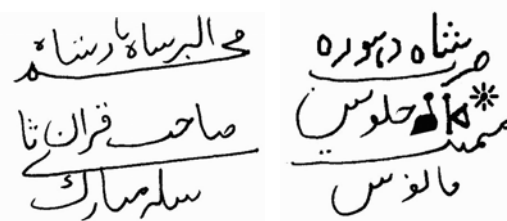 محمد اکبر شاه بادشاه
صاحب قران ثانی
سکه مبارک
شاه
ضرب
جلوس
میمنت
مانوس